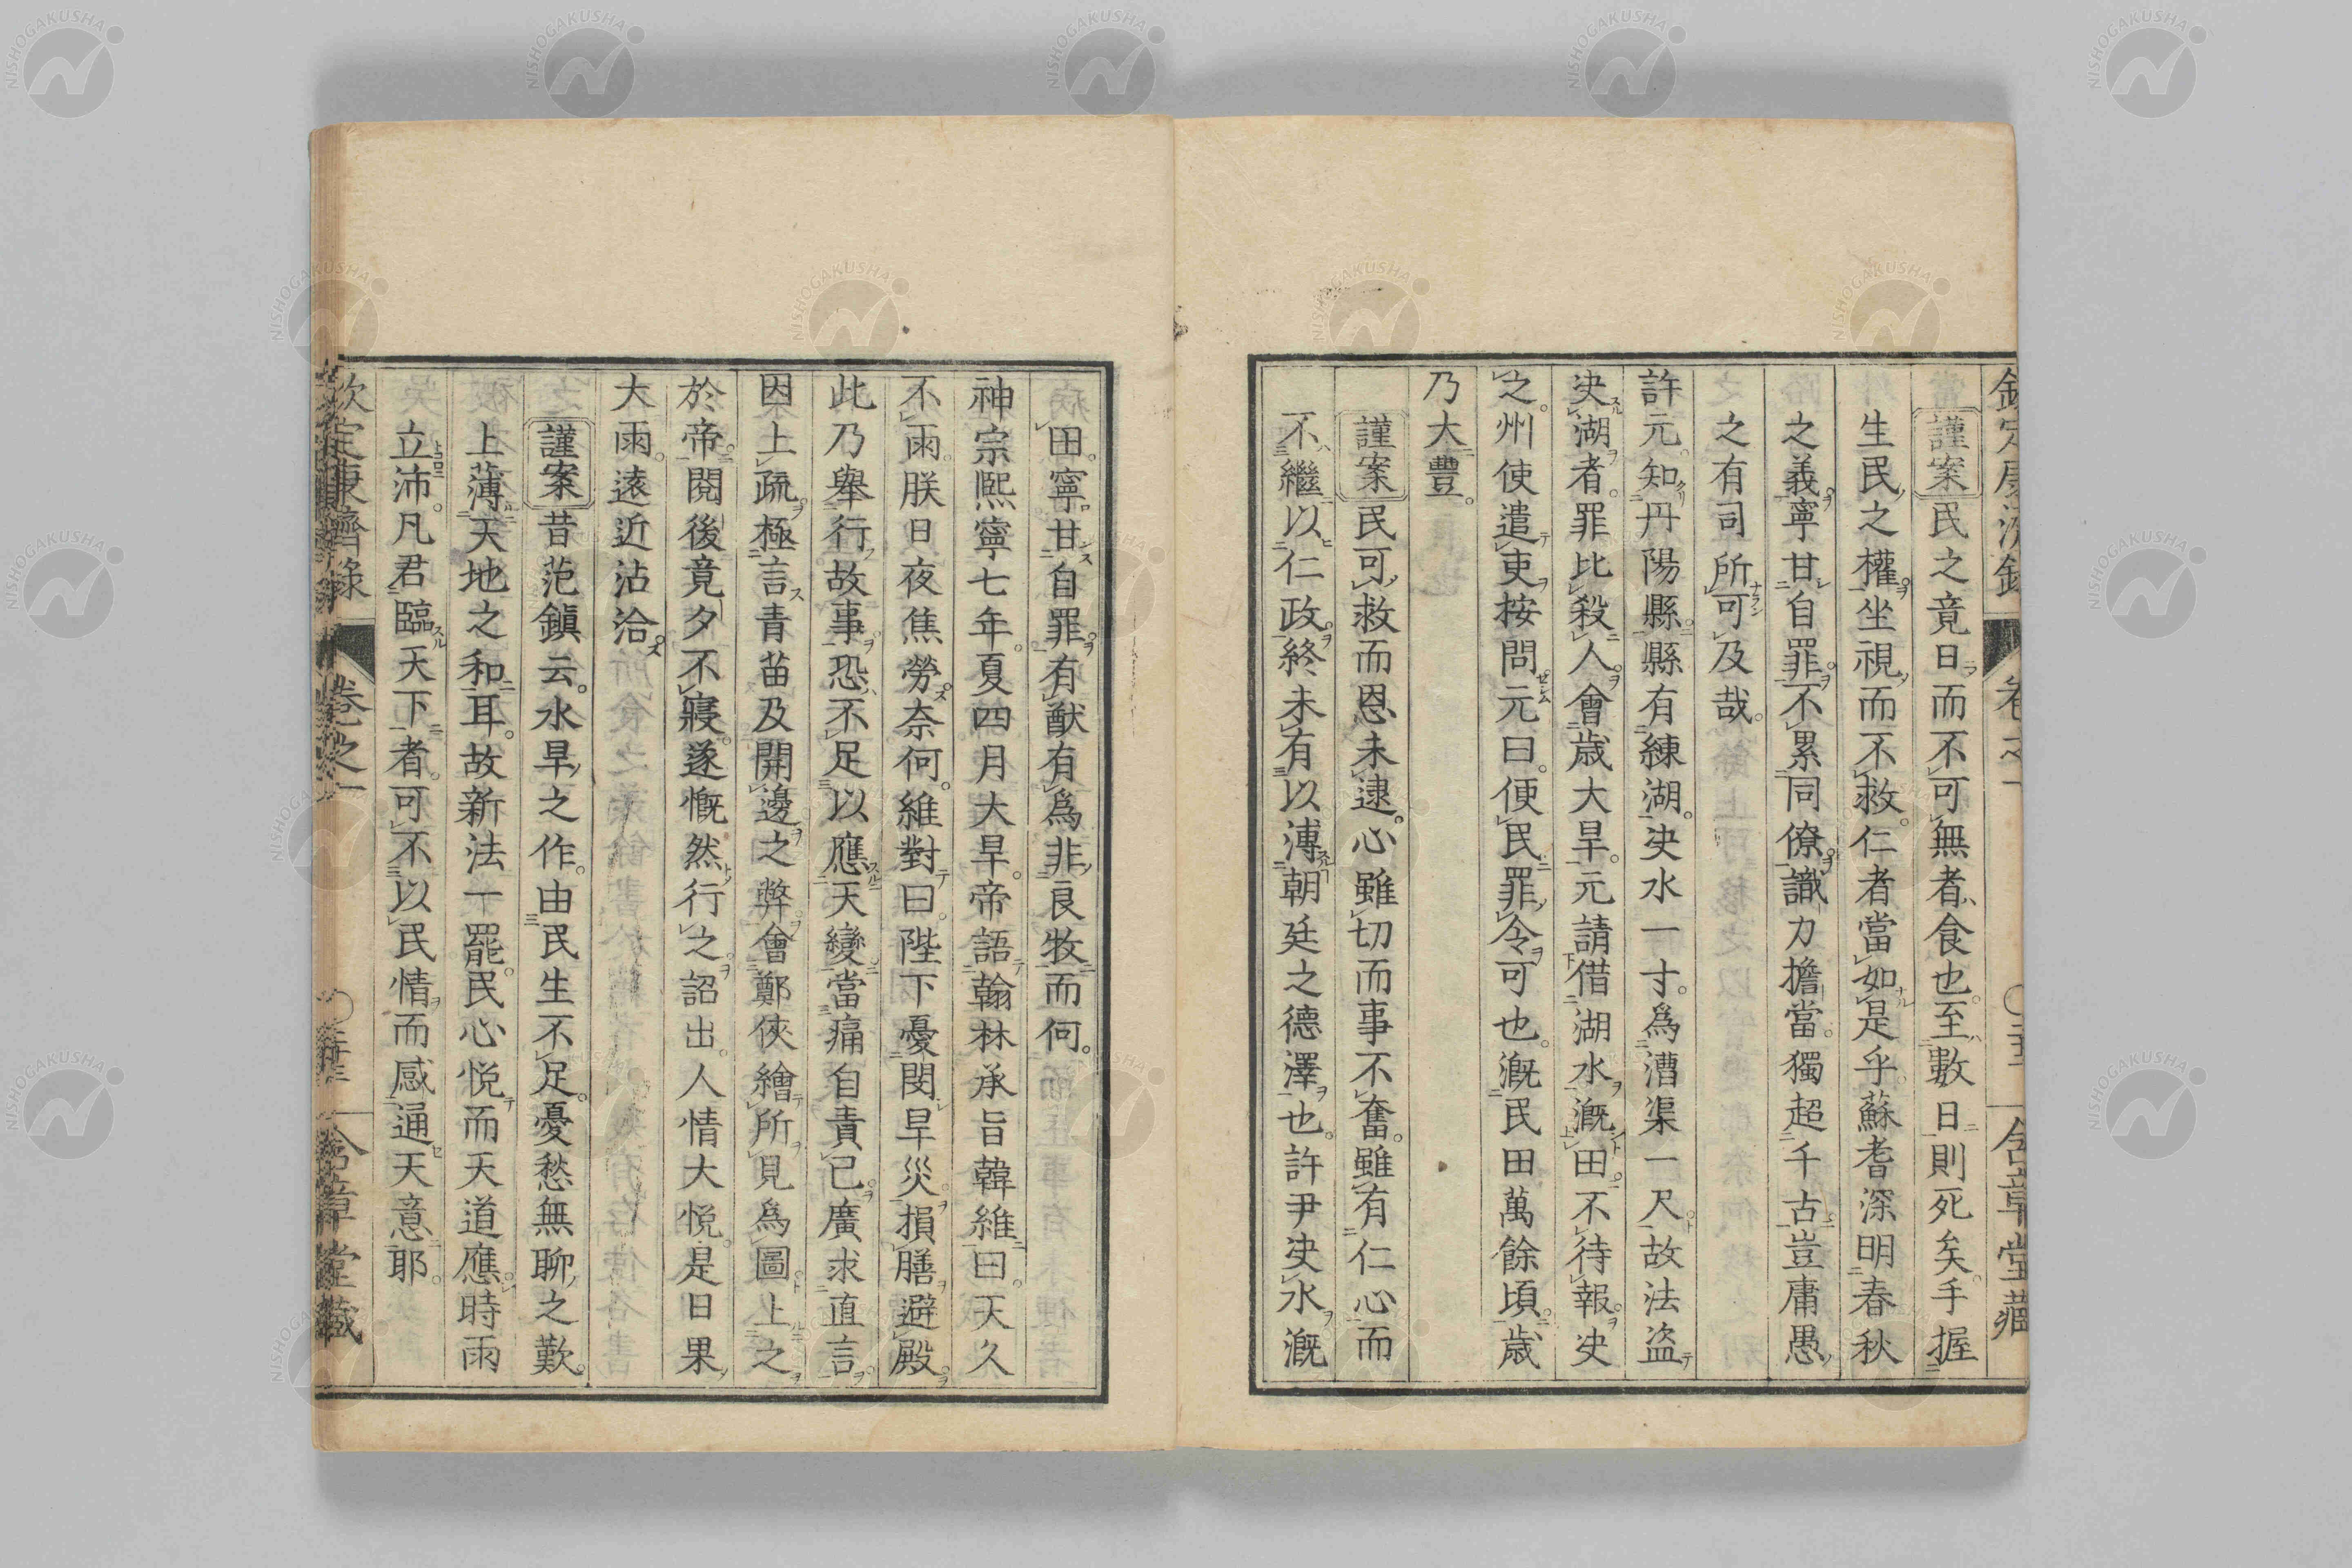 謹案民之竟日而不可無者食也至數日則死矣手握
生民之權坐視而不救仁者當如是乎蘇耆深明春秋
之義寧甘自罪不累同僚識力擔當獨超千古豈庸愚
之有司所可及哉
許元知丹陽縣縣有練湖決水一寸爲漕渠一尺故法盜
決湖者罪比殺人會歲大旱元請借湖水漑田不待報決
之州使遣吏按問元曰便民罪令可也漑民田萬餘頃歲
乃大豐
謹案民可救而恩未逮心雖切而事不奮雖有仁心而
不繼以仁政終未有以溥朝廷之德澤也許尹決水漑
田寧甘自罪有猷有爲非良牧而何
神宗熙寧七年夏四月大旱帝語翰林承旨韓維曰天久
不雨朕日夜焦勞奈何維對曰陛下憂閔旱災損膳避殿
此乃舉行故事恐不足以應天變當痛自責已廣求直言
因上疏極言青苗及開邊之弊會鄭俠繪所見爲圖上之
於帝閱後竟夕不寢遂慨然行之詔出人情大悅是日果
大雨遠近沾洽
謹案昔范鎭云水旱之作由民生不足憂愁無聊之歎
上薄天地之和耳故新法一罷民心悅而天道應時雨
立沛凡君臨天下者可不以民情而感通天意耶
欽定康濟錄 卷之一 含章堂藏